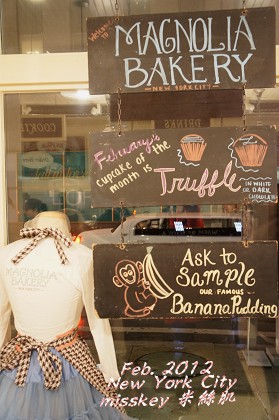 Welcome to
MAGNOLIA
BAKERY
NEW YORK CITY
COOKIE
DRINKS
February's
cupcake of the
month is
Truffle
IN WHITE
OR DARK
CHOCOLATE
MAGNOLIA
BAKERY
NEW YORK CITY
ASK to
SAMPLE
OUR FAMOUS
Banana Pudding
Feb. 2012
New York City
misskey 米絲肌